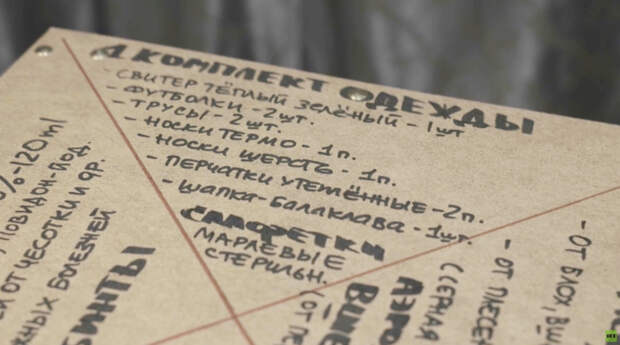 1 КОМПЛЕКТ ОДЕЖДЫ
- СВИТЕР ТЁПЛЫЙ ЗЕЛЁНЫЙ - 1 шт
- ФУТБОЛКИ - 2 шт.
- ТРУСЫ - 2 шт.
- НОСКИ ТЕРМО - 1 п.
- НОСКИ ШЕРСТЬ - 1 п.
- ПЕРЧАТКИ УТЕПЛЁННЫЕ - 2 п.
- ШАПКА-БАЛАКЛАВА - 1 шт.
САЛФЕТКИ
МАРЛЕВЫЕ
СТЕРИЛЬН.
%-120ml
ПОВИДОН-ЙОД.
ОТ ЧЕСОТКИ И ДР.
БОЛЕЗНЕЙ
БИНТЫ
(ОТ
АЭРО
ВШЕ
(СЕРНАЯ
- ОТ
- ОТ БЛОХ,
RT